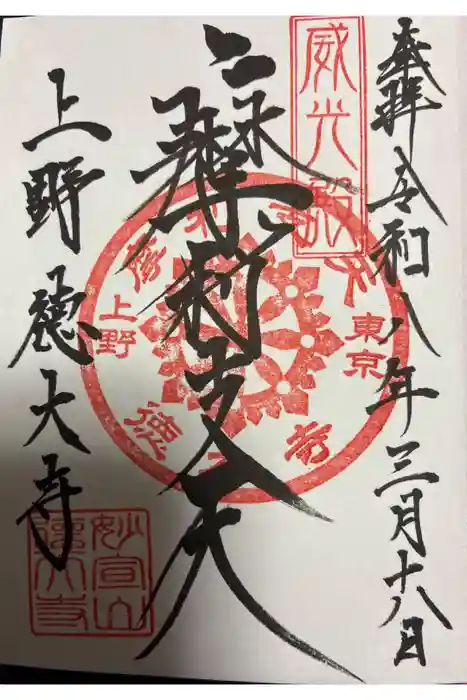 奉拝 令和八年三月十八日
威光殿
摩利支天
上野
東京
徳大寺
上野 徳大寺
妙宣山
徳大寺